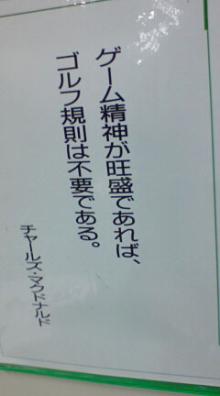 ゲーム精神が旺盛であれば、
ゴルフ規則は不要である。
チャールズ・マクドナルド